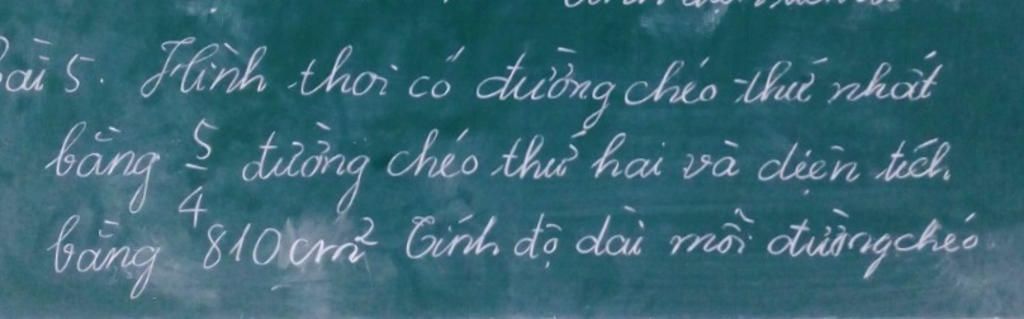 Bài 5. Hình thoi có đường chéo thứ nhất
bằng 5/4 đường chéo thứ hai và diện tích
bằng 810cm² Tính độ dài mỗi đường chéo.